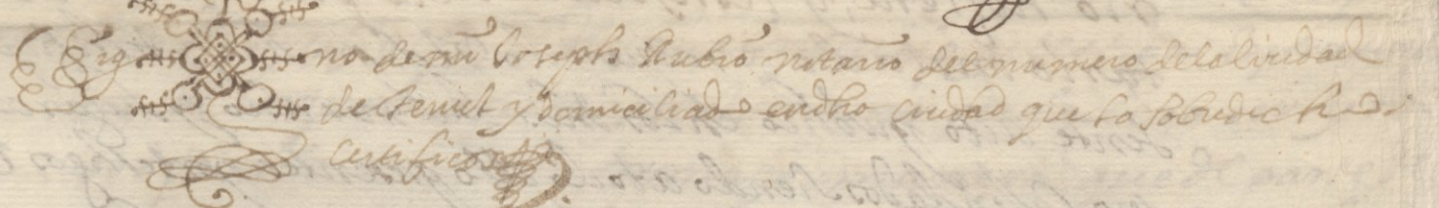 Sig no de mi Joseph Rubio notario del numero de la Ciudad
de Teruel y domiciliado en dho ciudad que lo sobredicho
certifico